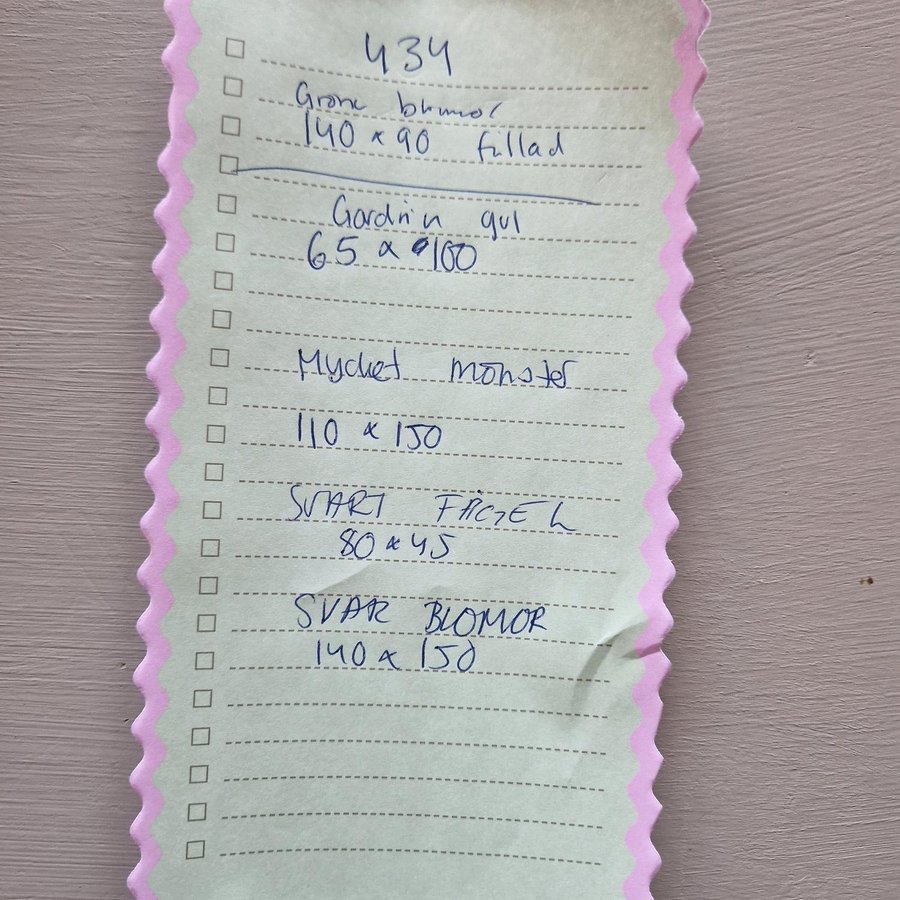 434
Grone blomor
140 x 90 fållad
Gardin gul
65 x 100
Mycket mönster
110 x 150
SVART FÅGEL
80 x 45
SVAR BLOMOR
140 x 150